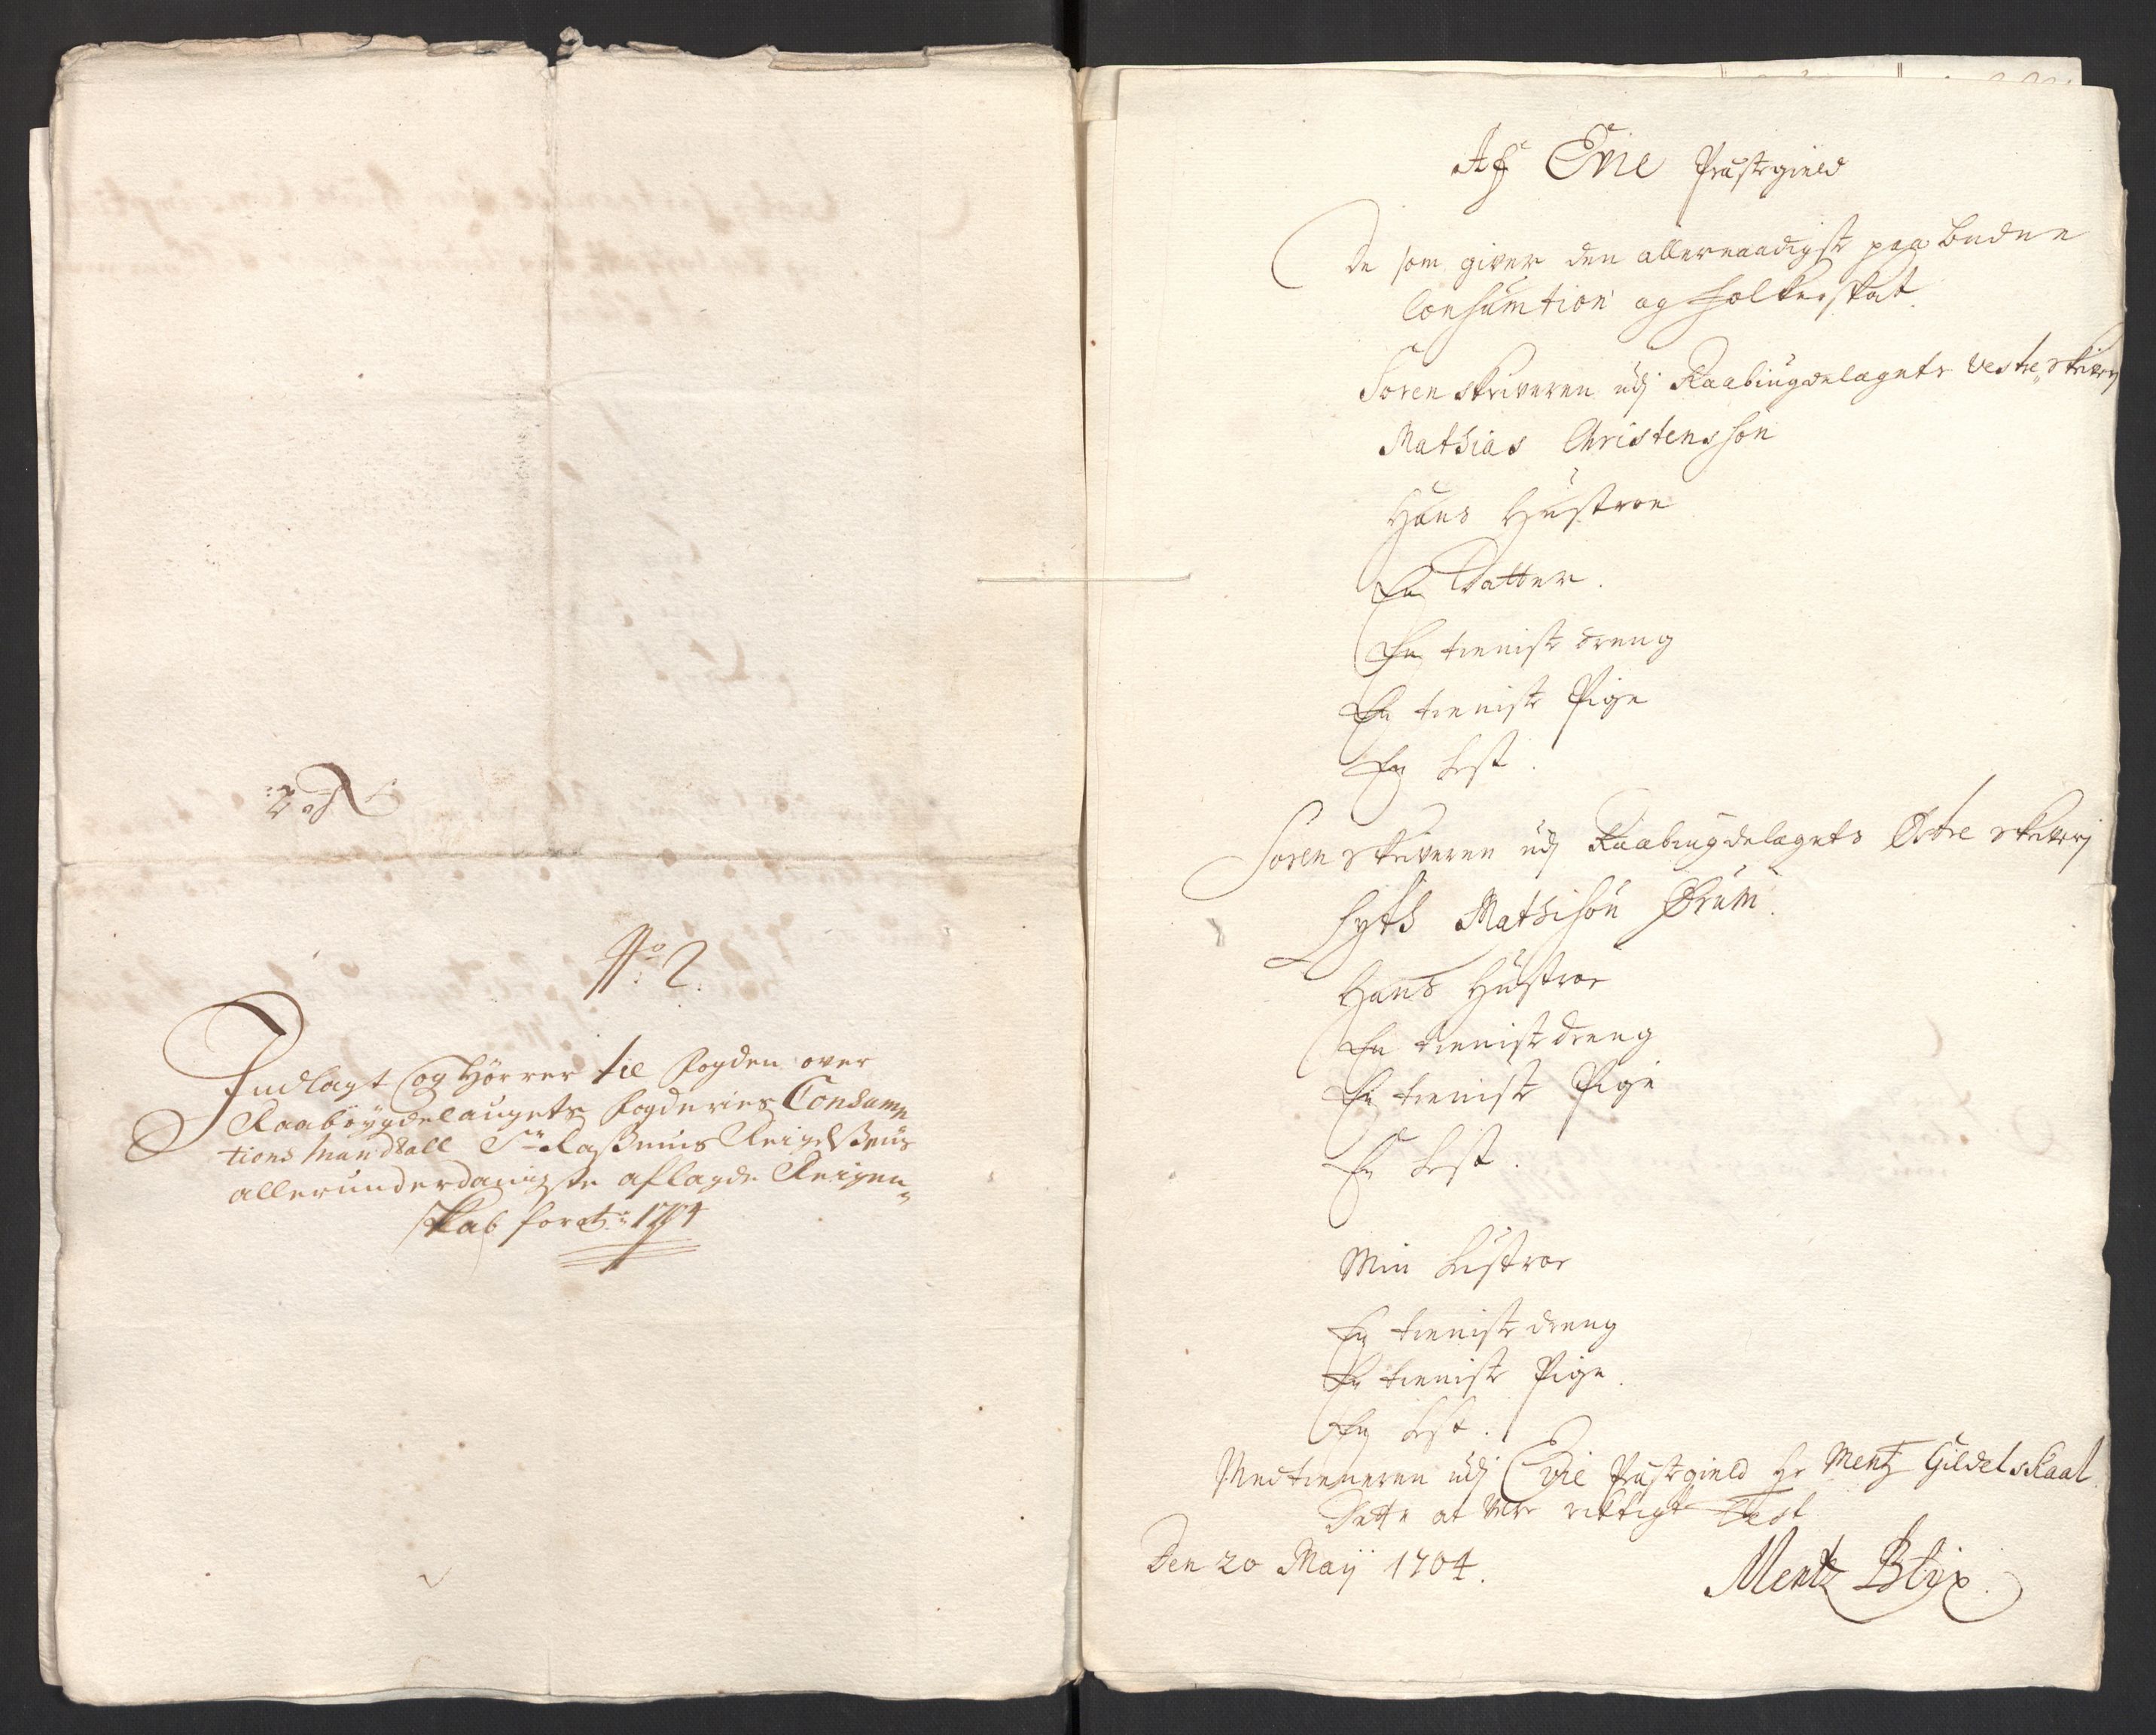 No 2.
Indlagt og Hörrer til fogden over
Raaböygdelaugets fogderies Consump
tions Mandtall Sr Rasmus
allerunderdanigste aflagde Reigen-
skab for Ao 1704
Af Evie Præstegield
De som giver den allernaadigst paabudne
Consumtion og Folkeskat.
Sorenskriveren udj Raabiugdelagets Vestre Skriverj
Mathias Christenssøn
Hans Hustroe
En Datter.
En tieniste dreng
En tieniste Pige
En Hest.
Sorenskriveren udj Raabiugdelagets Østre Skriverj
Mathisøn Ørum.
Hans Hustroe
En tieniste dreng
En tieniste Pige
En Hest.
Min Hustroe
En tieniste dreng
En tieniste Pige.
En Hest.
Medtieneren udj Evie Præstegield Hr Mentz Gildelskaal.
Dette at være rigtigt Test
Den 20 Maij 1704.
Mentz Blix.